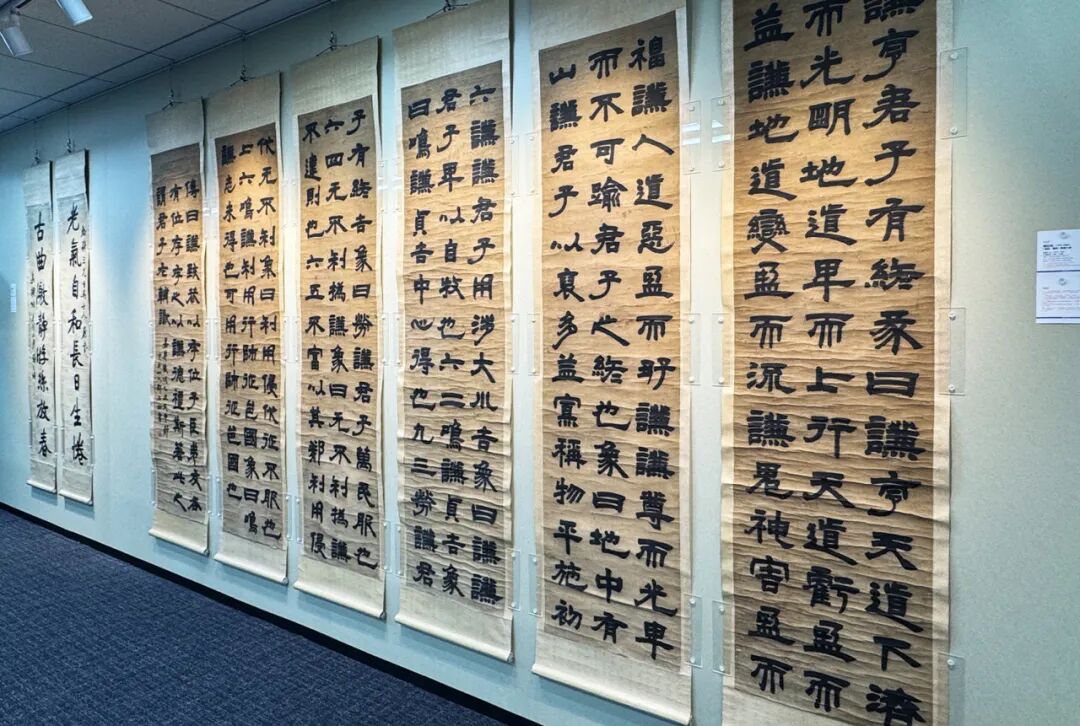 謙亨君子有終彖曰謙亨天道下濟
而光明地道卑而上行天道虧盈而
益謙地道變盈而流謙鬼神害盈而
福謙人道惡盈而好謙謙尊而光卑
而不可踰君子之終也象曰地中有
山謙君子以裒多益寡稱物平施初
六謙謙君子用涉大川吉象曰謙謙
君子卑以自牧也六二鳴謙貞吉象
曰鳴謙貞吉中心得也九三勞謙君
子有終吉象曰勞謙君子萬民服也
六四无不利撝謙象曰无不利撝謙
不違則也六五不富以其鄰利用侵
伐无不利象曰利用侵伐征不服也
上六鳴謙利用行師征邑國象曰鳴
謙志未得也可用行師征邑國也
傳曰謙致恭以存位子臣弟友各
有位存存之以謙德禮斯善此之
謂君子
氣自和長日
古曲靜放春